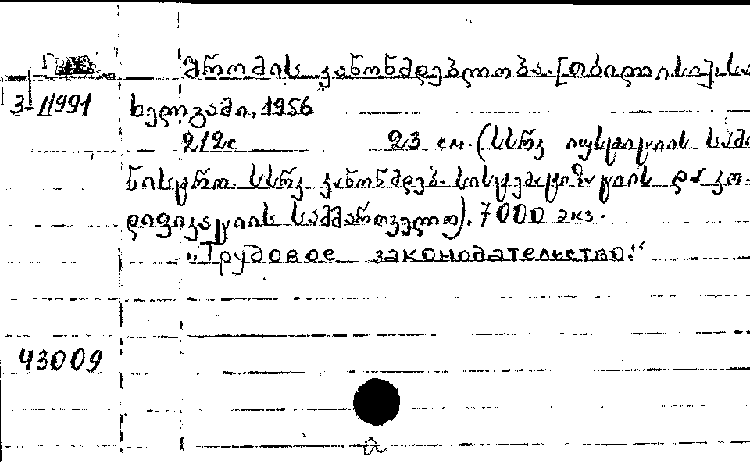 შრომის კანონმდებლობა. [თბილისი] სა
3-11991 ხელგამი, 1956
212с 23 см. (სსრკ იუსტიციის სამი
ნისტრო. სსრკ კანონმდებ. სისტემატიზაციის და კო
დიფიკაციის სამმართველო). 7000 экз.
„Трудовое законодательство.“
43009